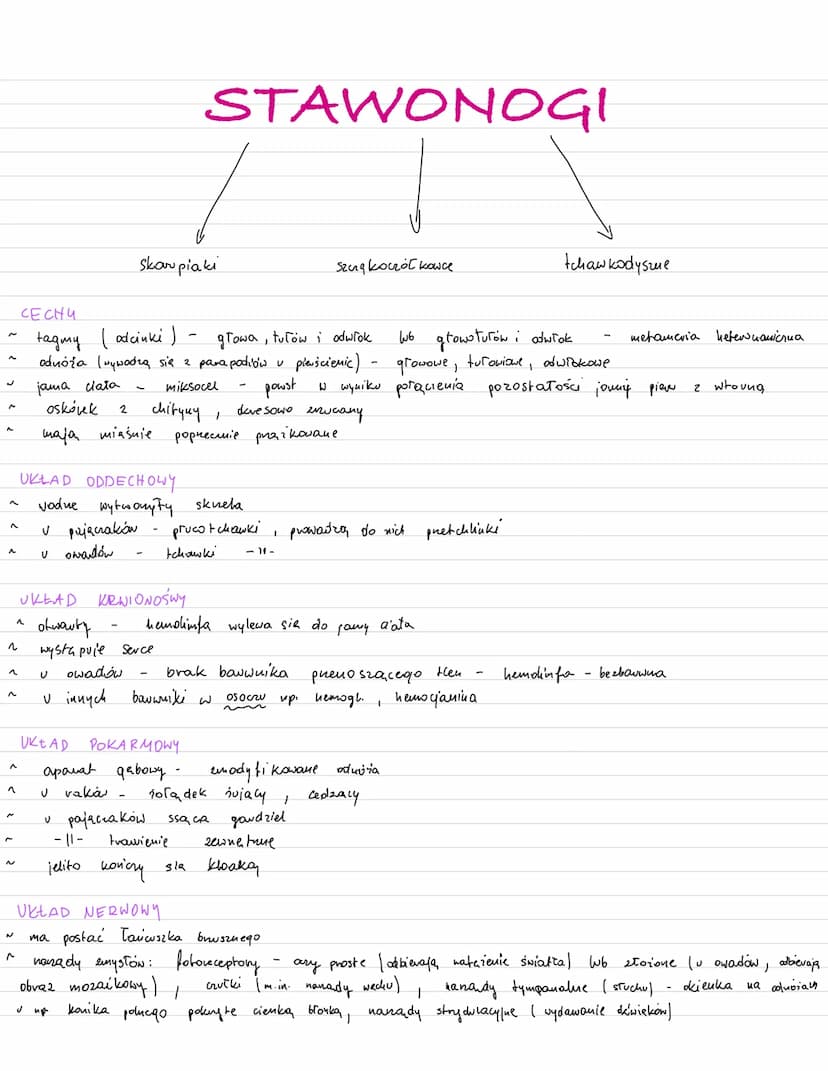 STAWONOGI
skorupiaki szczękoczółkowce tchawkodyszne
CECHY
~ tagmy (odcinki) - głowa, tułów i odwłok lub głowotułów i odwłok - metameria heteronomiczna
~ odnóża (wywodzą się z parapodiów u pierścienic) - głowowe, tułowiowe, odwłokowe
~ jama ciała - miksocel - powst w wyniku połączenia pozostałości jamy pierw z wtórną
~ oskórek z chityny, okresowo zrzucany
~ mają mięśnie poprzecznie prążkowane
UKŁAD ODDECHOWY
~ wodne wytworzyły skrzela
~ u pajęczaków - płucotchawki, prowadzą do nich przetchlinki
~ u owadów - tchawki -11-
UKŁAD KRWIONOŚWY
~ otwarty - hemolinfa wylewa się do jamy ciała
~ występuje serce
~ u owadów - brak barwnika przenoszącego tlen - hemolinfa - bezbarwna
~ u innych barwniki w osoczu np. hemogl., hemocyjanina
UKŁAD POKARMOWY
~ aparat gębowy - zmodyfikowane odnóża
~ u raków - żołądek żujący, cedzący
~ u pajęczaków ssąca gardziel
~ -11- trawienie zewnętrzne
~ jelito kończy się kloaką
UKŁAD NERWOWY
~ ma postać łańcuszka brzusznego
~ narządy zmysłów: fotoreceptory - oczy proste (odbierają natężenie światła) lub złożone (u owadów, odbierają
obraz mozaikowy), czułki (m.in. narządy węchu), narządy tympanalne (słuchu) - okienka na odnóżach
u np konika polnego pokryte cienką błonką, narządy strydulacyjne (wydawanie dźwięków)